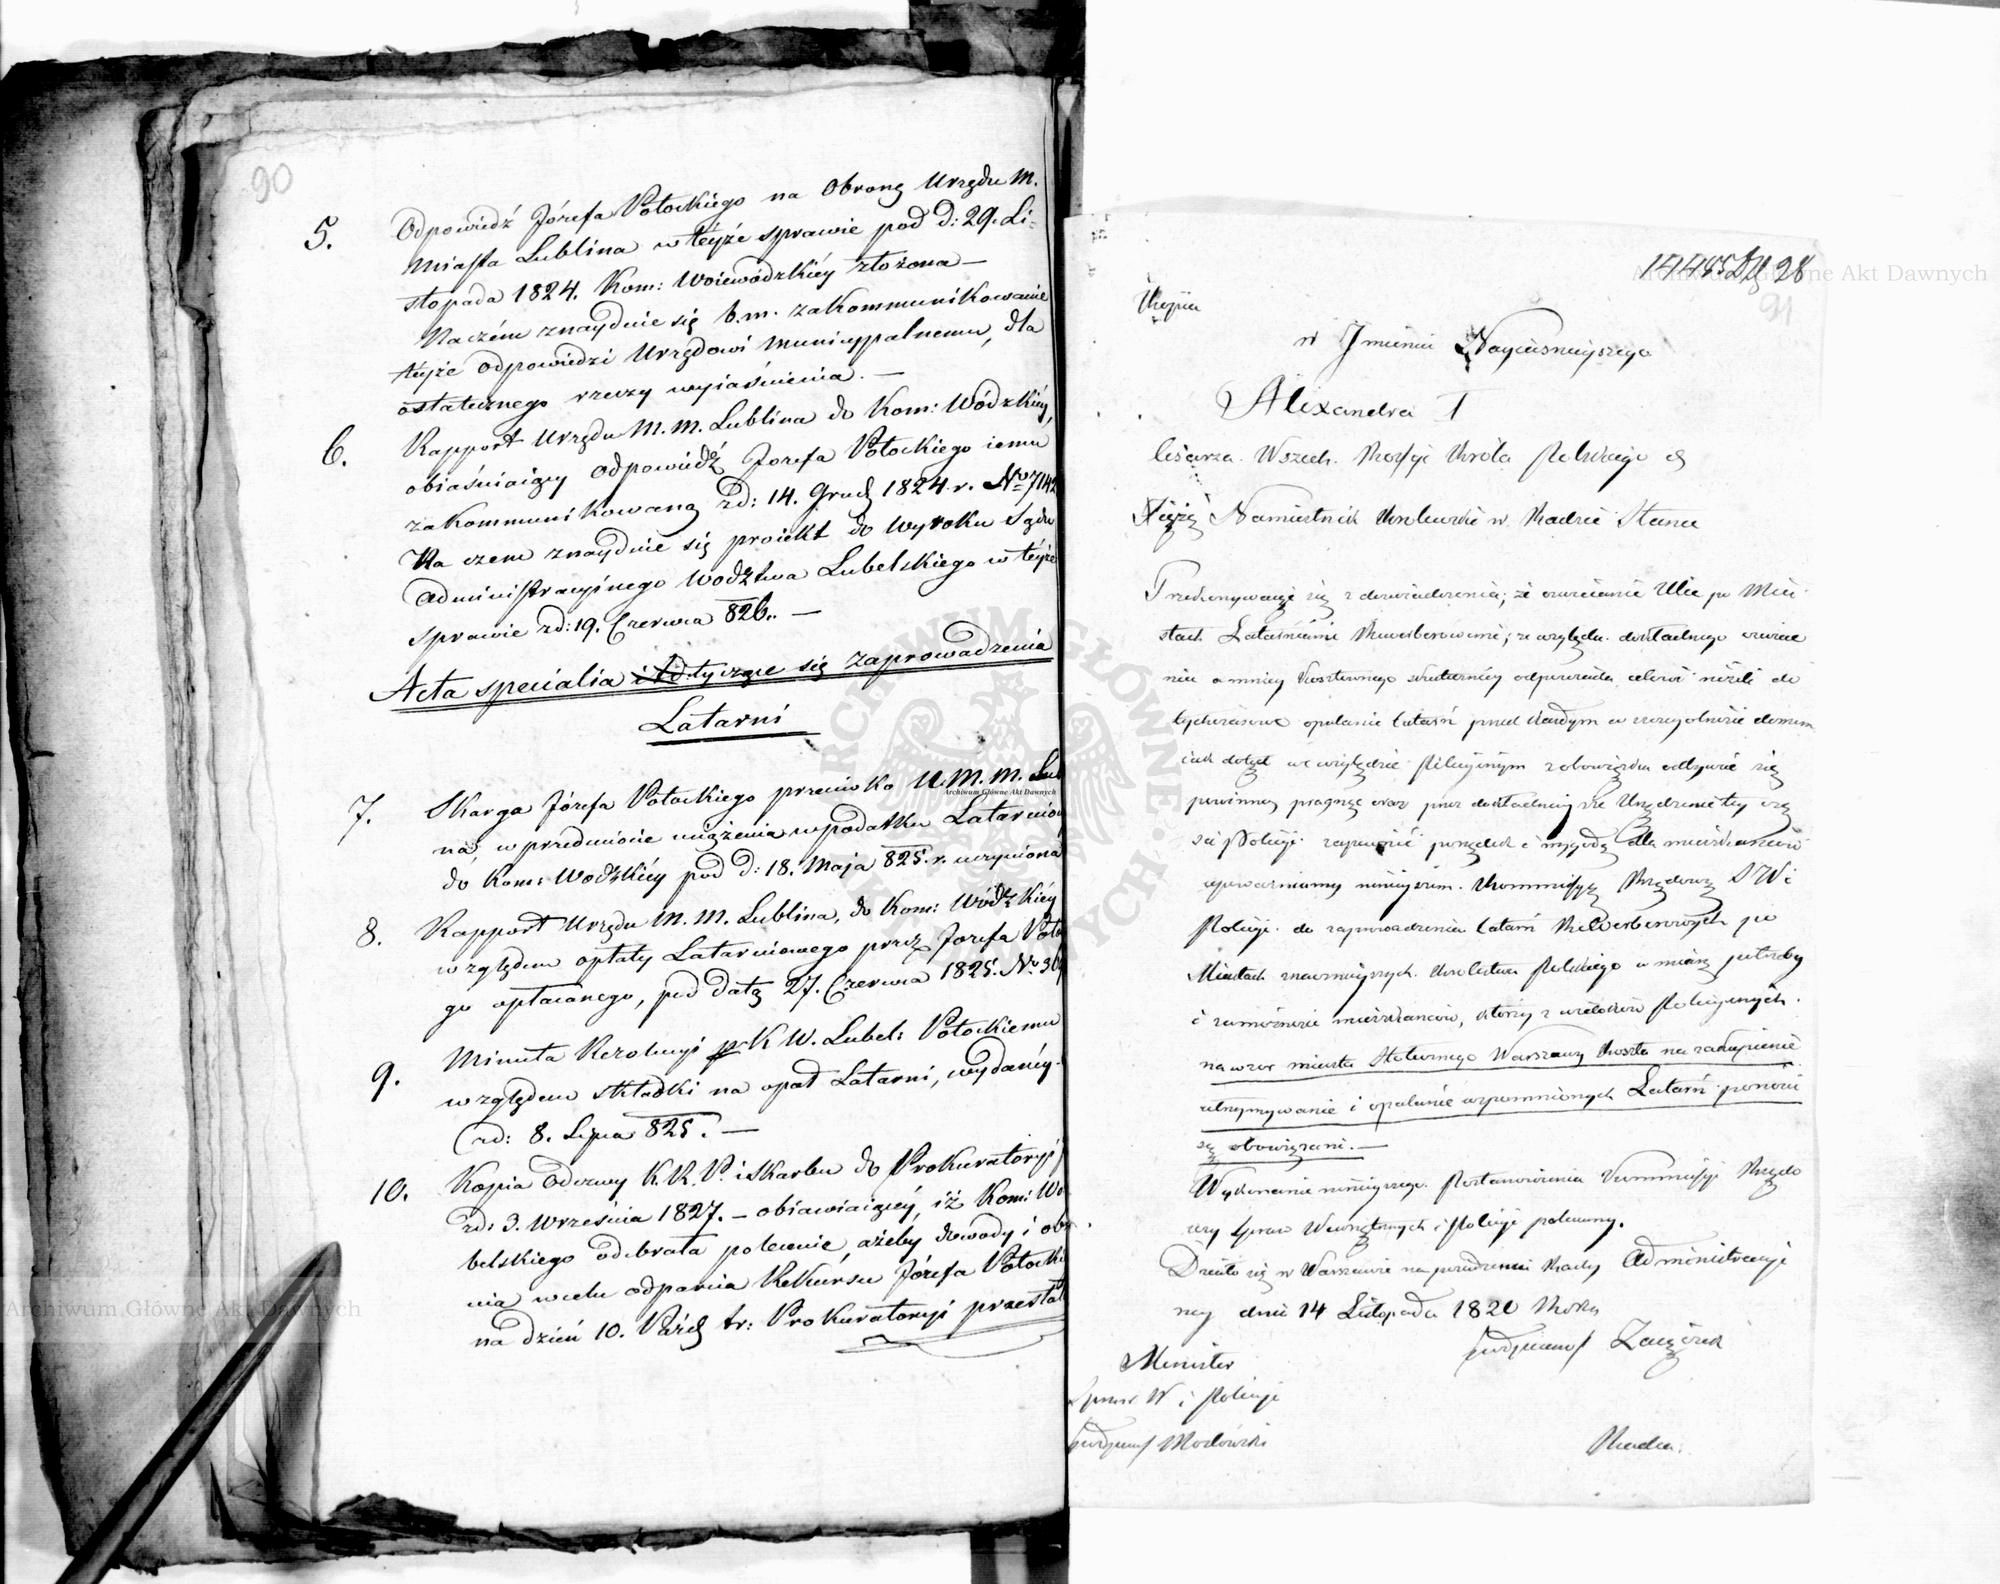 90
5. Odpowiedź Józefa Potockiego na Obronę Urzędu M.
Miasta Lublina w teyże sprawie pod d: 29. Li-
stopada 1824. Kom: Woiewódzkiéy złożona —
Na czém znayduie się b.m. zakommunikowanie
teyże odpowiedzi Urzędowi Municypalnemu, dla
ostatecznego rzeczy wyiaśnienia. —
6. Rapport Urzędu M. M. Lublina do Kom: Wódzkiéy,
obiaśniaiący odpowiedź Jozefa Potockiego iemu
zakommunikowaną zd: 14. Grud 1824 r. No 7142
Na czem znayduie się proiekt do Wyroku Sądu
Administracyinego Wodztwa Lubelskiego w téyże
sprawie zd: 19. Czerwca 826. —
Acta specialia tyczące się zaprowadzenia
Latarni
7. Skarga Józefa Potockiego przeciwko U. M. M. Lub
na, w przedmiocie uciążenia w podatku Latarniow
do Kom: Wodzkiéy pod d: 18. Maja 825. r. uczyniona
8. Rapport Urzędu M. M. Lublina, do Kom: Wódzkiéy
względem opłaty Latarniowego przez Jozefa Poto
go opłacanego, pod datą 27. Czerwca 1825. No 30
9. Minuta Rezolucyi p K W. Lubel: Potockiemu
względem składki na opał Latarni, wydanéy
zd: 8. Lipca 825. —
10. Kopia Odezwy K. R. P. i Skarbu do Prokuratoryi
zd: 3. Września 1827. — obiawiaiącéy, iż Kom: Wo
belskiego odebrała polecenie, ażeby dowody i ob
nia w celu odparcia Rekursu Józefa Potocki
na dzień 10. Paźd tr: Prokuratoryi przesłał
14485 28
91
Kopia
w Imieniu Nayiasnieyszego
Alexandra I
Cesarza Wszech. Rossyi Króla Polskiego &
Xiąże Namiestnik Krolewski w Radzie Stanu
Przekonywając się z doswiadczenia, że oswiecanie Ulic po Mia-
stach Latarniami Rewerberowemi, ze względu dokładnego oswiece
nia a mniey kosztownego skuteczniey odpowiada celowi niżeli do
tychczasowe opalanie latarń przed każdym w szczególnosci domem
iak dotąd we względzie Policyinym z obowiązku odbywać się
powinney pragnąc oraz przez dokładnieysze Urządzenie tey czę
sci Policyi zapewnić porządek i wygodę dla mieszkancow
upoważniamy ninieyszem Kommissyą Rządową S W i
Policyi do zaprowadzenia latarń Rewerberowych po
Miastach znacznieyszych Krolestwa Polskiego w miarę potrzeby
i zamożnosci mieszkancow, ktorzy z widoków Policyinych
na wzor miasta Stołecznego Warszawy koszta na zakupienie
utrzymywanie i opalanie wspomnionych Latarń ponosić
są obowiązani. —
Wykonanie ninieyszego Postanowienia Kommissyi Rządo
wey Spraw Wewnętrznych i Policyi polecamy.
Działo się w Warszawie na posiedzeniu Rady Administracyi
ney dnia 14 Listopada 1820 Roku
podpisano Zaiączek
Minister
Spraw W i Policyi
podpisano Mostowski
Radca